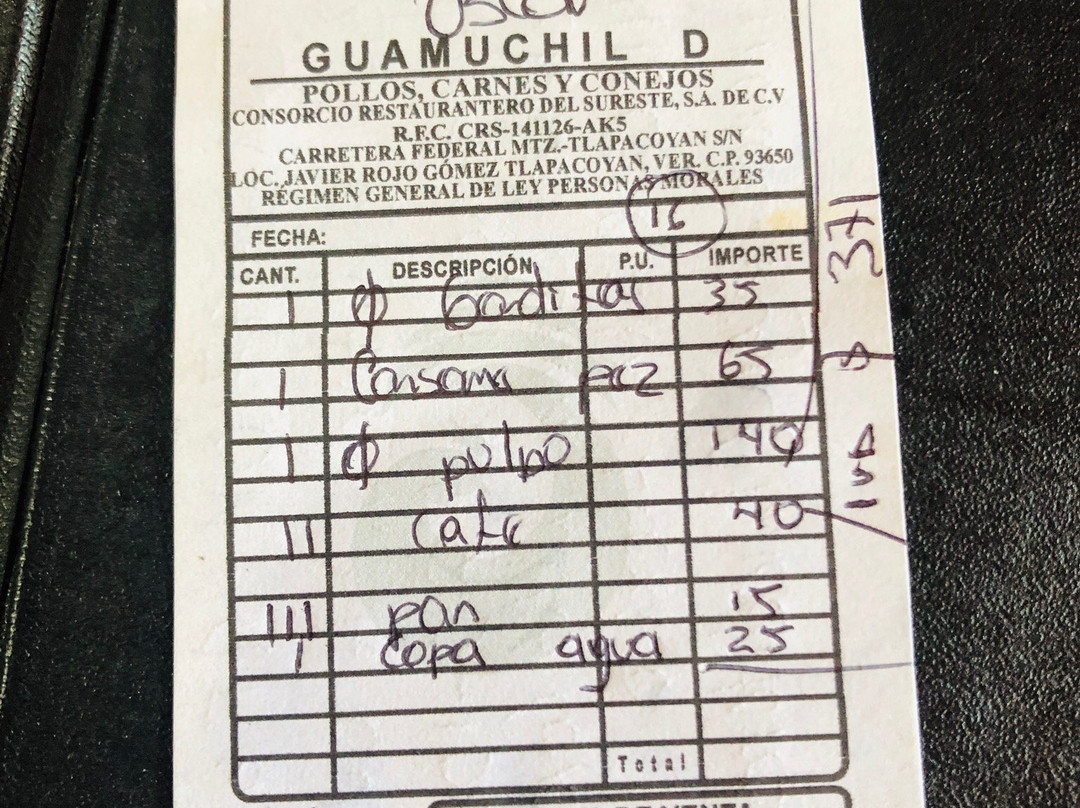 GUAMUCHIL D
POLLOS, CARNES Y CONEJOS
CONSORCIO RESTAURANTERO DEL SURESTE, S.A. DE C.V
R.F.C. CRS-141126-AK5
CARRETERA FEDERAL MTZ.-TLAPACOYAN S/N
LOC. JAVIER ROJO GÓMEZ TLAPACOYAN, VER. C.P. 93650
RÉGIMEN GENERAL DE LEY PERSONAS MORALES
16
FECHA:
CANT. DESCRIPCIÓN P.U. IMPORTE
I Ø Gorditas 35
I Consome 65
I Ø pulpo 140
II Cafe 40
III pan 15
I Copa agua 25
Total
371